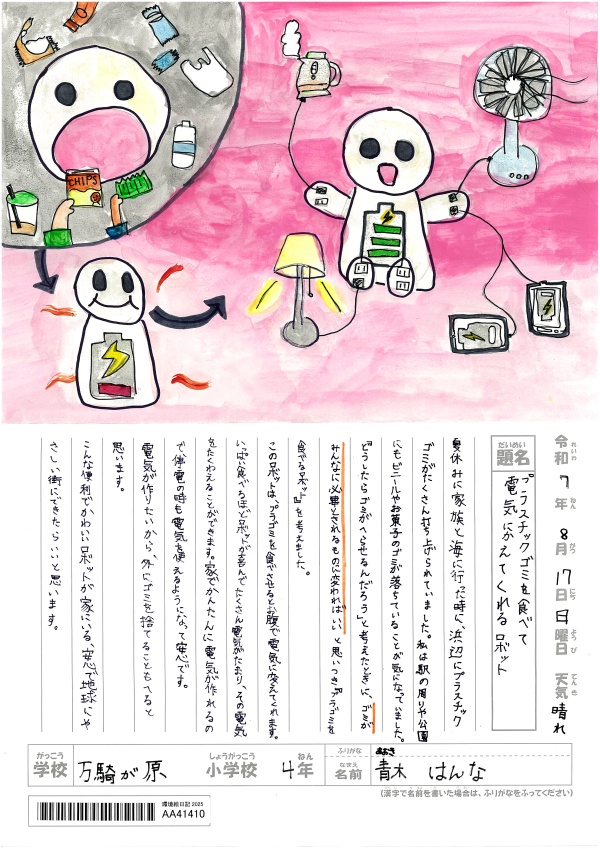 CHIPS
令和7年8月17日日曜日 天気 晴れ
れいわ ねん がつ にち ようび てんき
だいめい
題名
プラスチックゴミを食べて
電気にかえてくれるロボット
夏休みに家族と海に行った時に、浜辺にプラスチック
ゴミがたくさん打ち上げられていました。私は駅の周りや公園
にもビニールやお菓子のゴミが落ちていることが気になっていました。
「どうしたらゴミがへらせるんだろう」と考えたときに、ゴミが
みんなに必要とされるものに変わればいいと思いつき『プラゴミを
食べるロボット』を考えました。
このロボットは、プラゴミを食べさせるとお腹で電気に変えてくれます。
いっぱい食べるほどロボットが喜んでたくさん電気がたまり、その電気
をたくわえることができます。家でかんたんに電気が作れるの
で、停電の時も電気を使えるようになって安心です。
電気が作りたいから、外にゴミを捨てることもへると
思います。
こんな便利でかわいいロボットが家にいる、安心で地球にや
さしい街にできたらいいと思います。
がっこう
学校
万騎が原
しょうがっこう
小学校
4
ねん
年
ふりがな
あおき
なまえ
名前
青木 はんな
(漢字で名前を書いた場合は、ふりがなをふってください)
環境絵日記 2025
AA41410